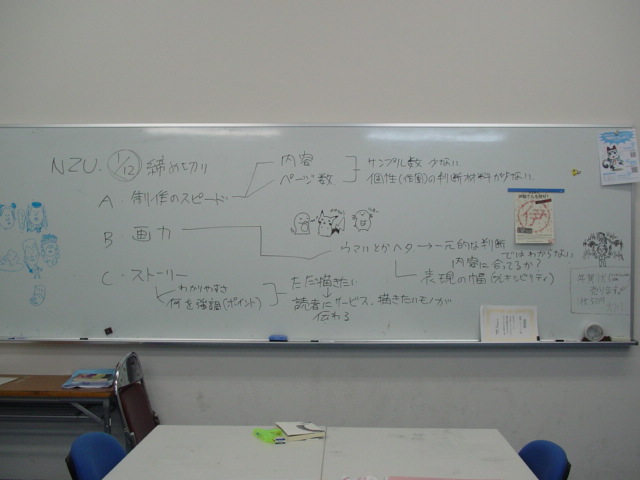 NZU. 1/12 締め切り
A. 制作のスピード
内容
ページ数
サンプル数 少ない
個性(作風)の判断材料が少ない
B. 画力
ウマいとかヘタ→一元的な判断
ではわからない
内容に合ってるか?
表現の幅(フレキシビリティ)
C. ストーリー
わかりやすさ
何を強調(ポイント)
ただ描きたい
↓
読者にサービス、描きたいモノが
伝わる